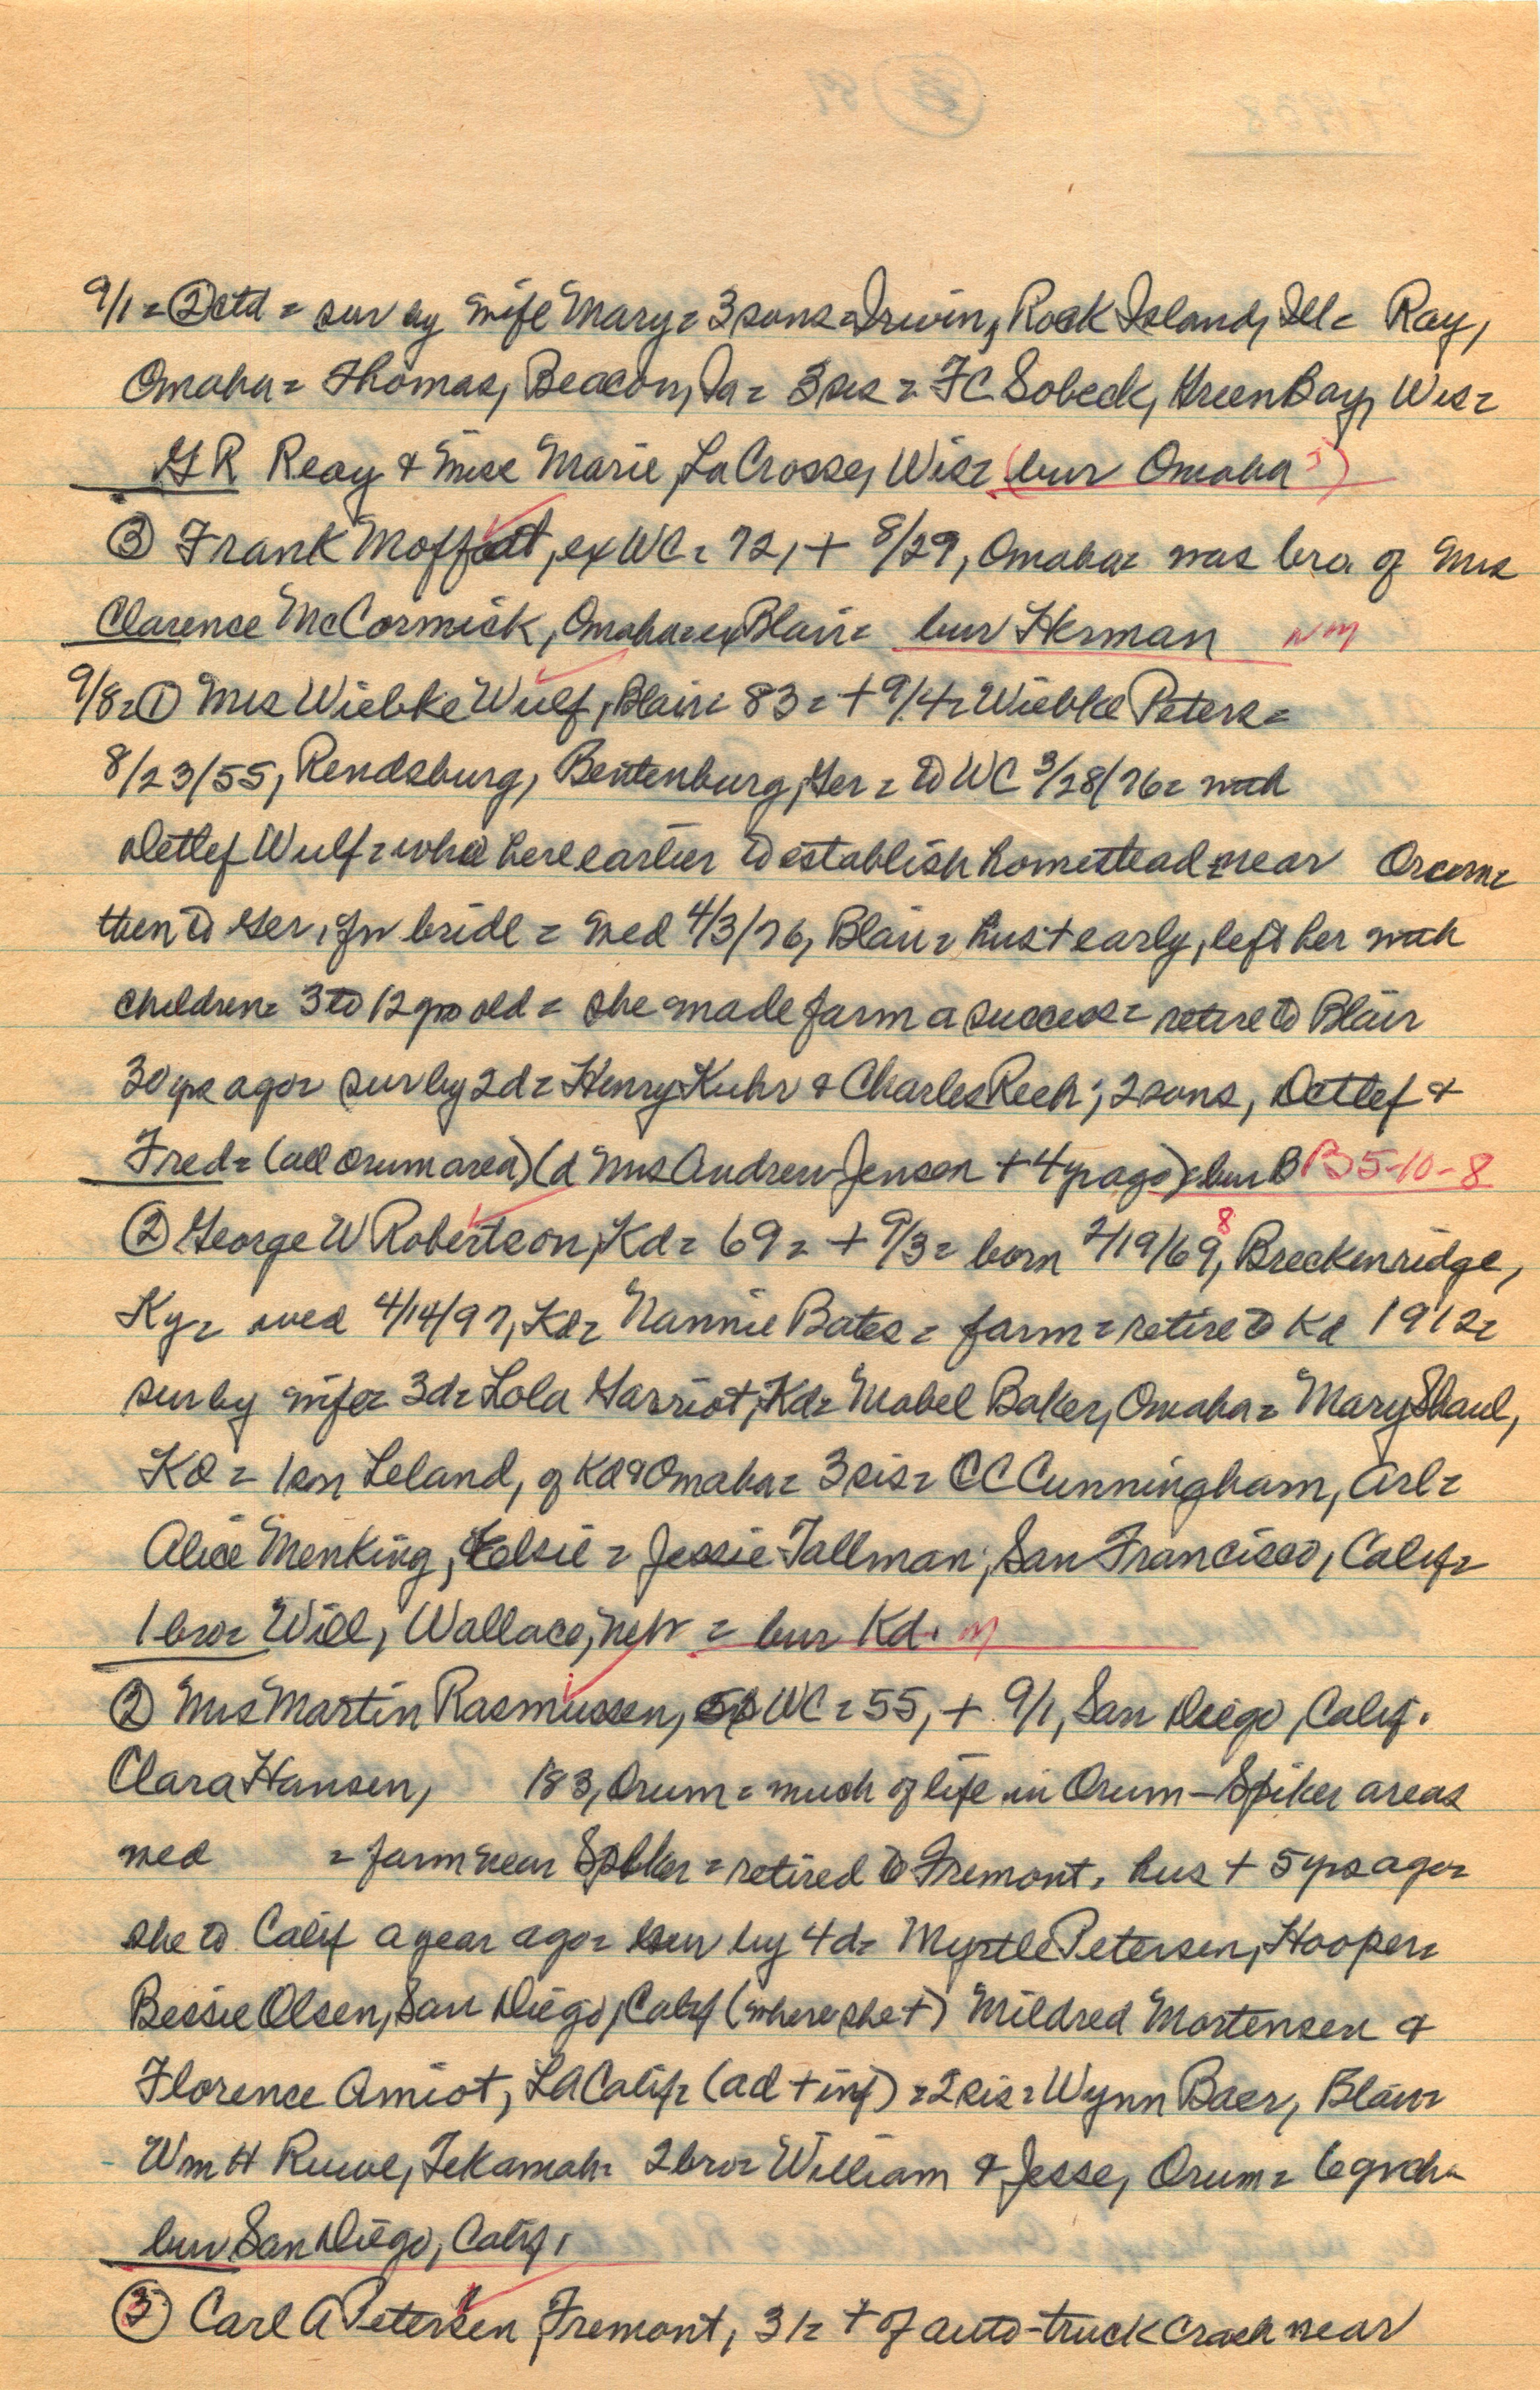 9/1 = ② ctd = sur by wife Mary = 3 sons = Irwin, Rock Island, Ill = Ray,
Omaha = Thomas, Beacon, Ia = 3 sis = FC Sobeck, Green Bay, Wis =
GR Reay & Miss Marie, LaCrosse, Wis = (bur Omaha)
③ Frank Moffatt, ex WC = 72, + 8/29, Omaha = was bro of Mrs
Clarence McCormick, Omaha = ex Blair = bur Herman NM
9/8 = ① Mrs Wiebke Wulf, Blair = 83 = + 9/4 = Wiebke Peters =
8/23/55, Rendsburg, Bentenburg, Ger = to WC 3/28/76 = with
Detlef Wulf = who here earlier to establish homestead near Orum =
then to Ger, for bride = wed 4/3/76, Blair = hus + early, left her with
children = 3 to 12 yrs old = she made farm a success = retire to Blair
30 yrs ago = sur by 2d = Henry Kuhr & Charles Rech; 2 sons, Detlef &
Fred = (all Orum area) (d Mrs Andrew Jensen + 4 yr ago) = bur B B 5-10-8
② George W Robertson, Kd = 69 = + 9/3 = born 2/19/69, 8 Breckenridge,
Ky = wed 4/14/97, Kd = Nannie Bates = farm = retire to Kd 1912 =
sur by wife = 3d = Lola Garriot, Kd = Mabel Baker, Omaha = Mary Shaul,
Kd = 1 son Leland, of Kd & Omaha = 3 sis = CC Cunningham, Arl =
Alice Menking, = Jessie Tallman, San Francisco, Calif =
1 bro = Will, Wallace, Nebr = bur Kd. M
② Mrs Martin Rasmussen, ex WC = 55, + 9/1, San Diego, Calif.
Clara Hansen, 183, Orum = much of life in Orum - Spiker areas
wed = farm near Spiker = retired to Fremont, hus + 5 yrs ago =
she to Calif a year ago = sur by 4d = Myrtle Petersen, Hooper =
Bessie Olsen, San Diego, Calif (where she +) Mildred Mortensen &
Florence Amiot, LA Calif = (ad + inf) = 2 sis = Wynn Baer, Blair =
Wm H Ruwe, Tekamah = 2 bro = William & Jesse, Orum = 6 grch =
bur San Diego, Calif.
③ Carl A Petersen, Fremont, 31 = + of auto-truck crash near